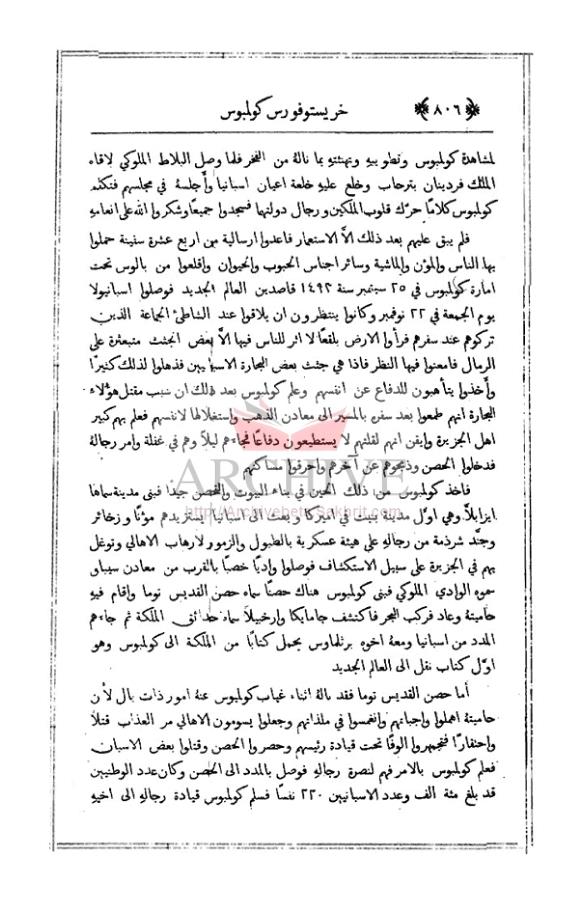 ﴿٨٠٦﴾ خريستوفورس كولمبوس
لمشاهدة كولمبوس وتطويبهِ وتهنئتهِ بما نالهُ من الفخر فلما وصل البلاط الملوكي لاقاهُ
الملك فردينان بترحاب وخلع عليهِ خلعة اعيان اسبانيا وأجلسهُ في مجلسهم فتكلم
كولمبوس كلامًا حرّك قلوب الملكين ورجال دولتها فسجدوا جميعًا وشكروا الله على انعامهِ
فلم يبق عليهم بعد ذلك الَّا الاستعمار فاعدوا ارسالية من اربع عشرة سفينة حملوا
بها الناس والمؤن والماشية وسائر اجناس الحبوب والحيوان واقلعوا من بالوس تحت
امارة كولمبوس في ٢٥ سبتمبر سنة ١٤٩٣ قاصدين العالم الجديد فوصلوا اسبانيولا
يوم الجمعة في ٢٢ نوفمبر وكانوا ينتظرون ان يلاقوا عند الشاطئ الجماعة الذين
تركوهم عند سفرهم فرأوا الارض بلقعًا لا اثر للناس فيها الَّا بعض الجثث متبعثرة على
الرمال فامعنوا فيها النظر فاذا هي جثث بعض البحارة الاسبانيين فذهلوا لذلك كثيرًا
وأخذوا يتأهبون للدفاع عن انفسهم وعلم كولمبوس بعد ذلك ان سبب مقتل هؤلاء
البحارة انهم طمعوا بعد سفرهِ بالمسير الى معادن الذهب واستغلالها لانفسهم فعلم بهم كبير
اهل الجزيرة وايقن انهم لقلتهم لا يستطيعون دفاعًا فجاءهم ليلًا وهم في غفلة وامر رجالهُ
فدخلوا الحصن وذبحوهم عن آخرهم واحرقوا مساكنهم
فاخذ كولمبوس من ذلك الحين في بناء البيوت والتحصن جيدًا فبنى مدينة سماها
ايزابلَّا وهي اوّل مدينة بنيت في اميركا وبعث الى اسبانيا يستزيدهم مؤنًا وذخائر
وجنَّد شرذمة من رجالهِ على هيئة عسكرية بالطبول والزمور لارهاب الاهالي وتوغل
بهم في الجزيرة على سبيل الاستكشاف فوصلوا واديًا خصبًا بالقرب من معادن سيباو
سموه الوادي الملوكي فبنى كولمبوس هناك حصنًا سماه حصن القديس توما واقام فيهِ
حامية وعاد فركب البحر فاكتشف جامايكا وارخبيلًا سماه حدائق الملكة ثم جاءهم
المدد من اسبانيا ومعهُ اخوه برثلماوس يحمل كتابًا من الملكة الى كولمبوس وهو
اوّل كتاب نقل الى العالم الجديد
أما حصن القديس توما فقد نالهُ اثناء غياب كولمبوس عنهُ امور ذات بال لأن
حاميتهُ اهملوا واجباتهم وانغمسوا في ملذاتهم وجعلوا يسومون الاهالي مر العذاب قتلًا
واحتقارًا فتجمهروا الوفًا تحت قيادة رئيسهم وحصروا الحصن وقتلوا بعض الاسبان
فعلم كولمبوس بالامر فهم لنصرة رجالهِ فوصل بالمدد الى الحصن وكان عدد الوطنيين
قد بلغ مئة الف وعدد الاسبانيين ٢٢٠ نفسًا فسلم كولمبوس قيادة رجالهِ الى اخيهِ
ARCHIVE
http://Archivebeta.Sakhrit.com